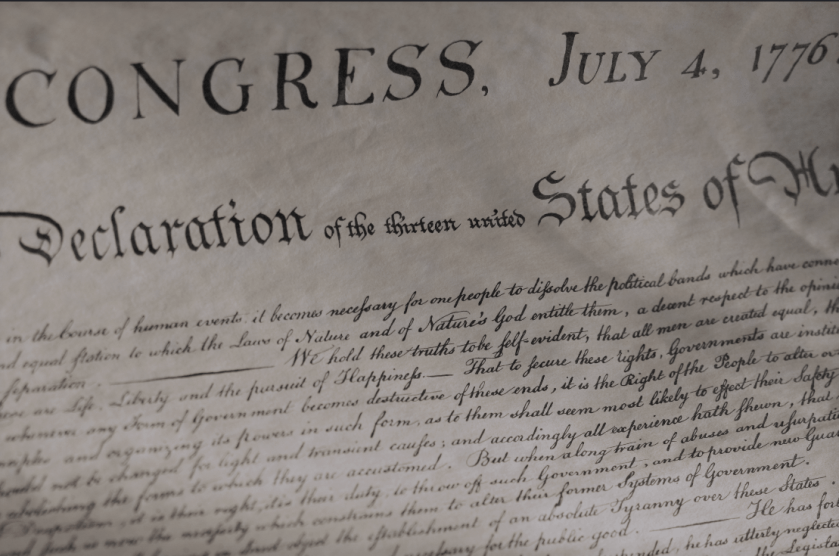 CONGRESS, JULY 4, 1776.
Declaration of the thirteen united States of
in the Course of human events, it becomes necessary for one people to dissolve the political bands which have
and equal station to which the Laws of Nature and of Nature's God entitle them, a decent respect to the
separation. We hold these truths to be self-evident, that all men are created equal,
are Life, Liberty and the pursuit of Happiness.— That to secure these rights, Governments are
whenever any Form of Government becomes destructive of these ends, it is the Right of the People to alter or
and organizing its powers in such form, as to them shall seem most likely to effect their Safety
not be changed for light and transient causes; and accordingly all experience hath shewn, that
abolishing the forms to which they are accustomed. But when a long train of abuses and
it is their right, it is their duty, to throw off such Government, and to provide new
which constrains them to alter their former Systems of Government.
the establishment of an absolute Tyranny over these States.
necessary for the public good. He has
he has utterly